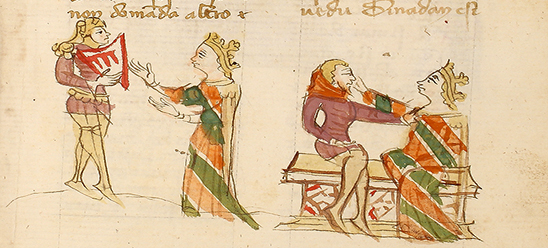 non domanda altro e
vedu Dinadan est